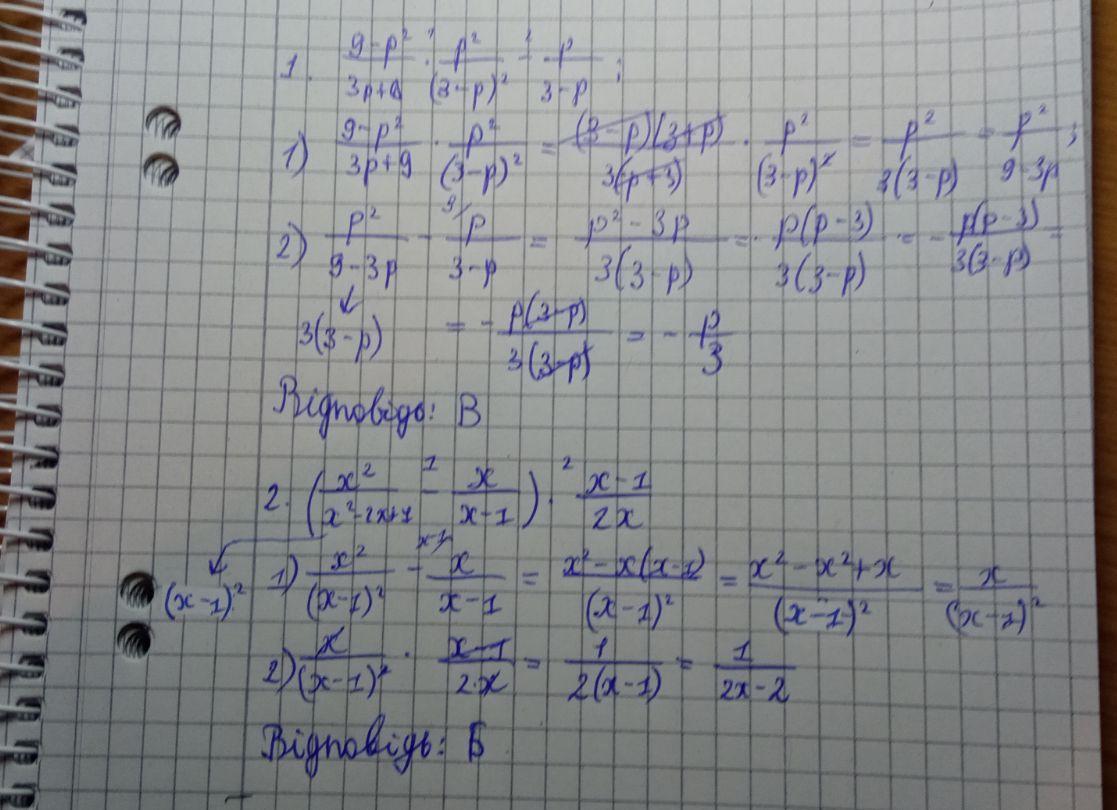 1. \frac{9-p^2}{3p+9} \cdot^1 \frac{p^2}{(3-p)^2} -^2 \frac{p}{3-p};
1) \frac{9-p^2}{3p+9} \cdot \frac{p^2}{(3-p)^2} = \frac{(3-p)(3+p)}{3(p+3)} \cdot \frac{p^2}{(3-p)^2} = \frac{p^2}{3(3-p)} = \frac{p^2}{9-3p};
2) \frac{p^2}{9-3p} - \frac{p}{3-p} = \frac{p^2-3p}{3(3-p)} = \frac{p(p-3)}{3(3-p)} = -\frac{p(p-3)}{3(3-p)} =
3(3-p) = -\frac{p(3-p)}{3(3-p)} = -\frac{p}{3}
Відповідь: В
2. (\frac{x^2}{x^2-2x+1} -^1 \frac{x}{x-1}) \cdot^2 \frac{x-1}{2x}
(x-1)^2 1) \frac{x^2}{(x-1)^2} - \frac{x}{x-1} = \frac{x^2-x(x-1)}{(x-1)^2} = \frac{x^2-x^2+x}{(x-1)^2} = \frac{x}{(x-1)^2}
2) \frac{x}{(x-1)^2} \cdot \frac{x-1}{2x} = \frac{1}{2(x-1)} = \frac{1}{2x-2}
Відповідь: Б